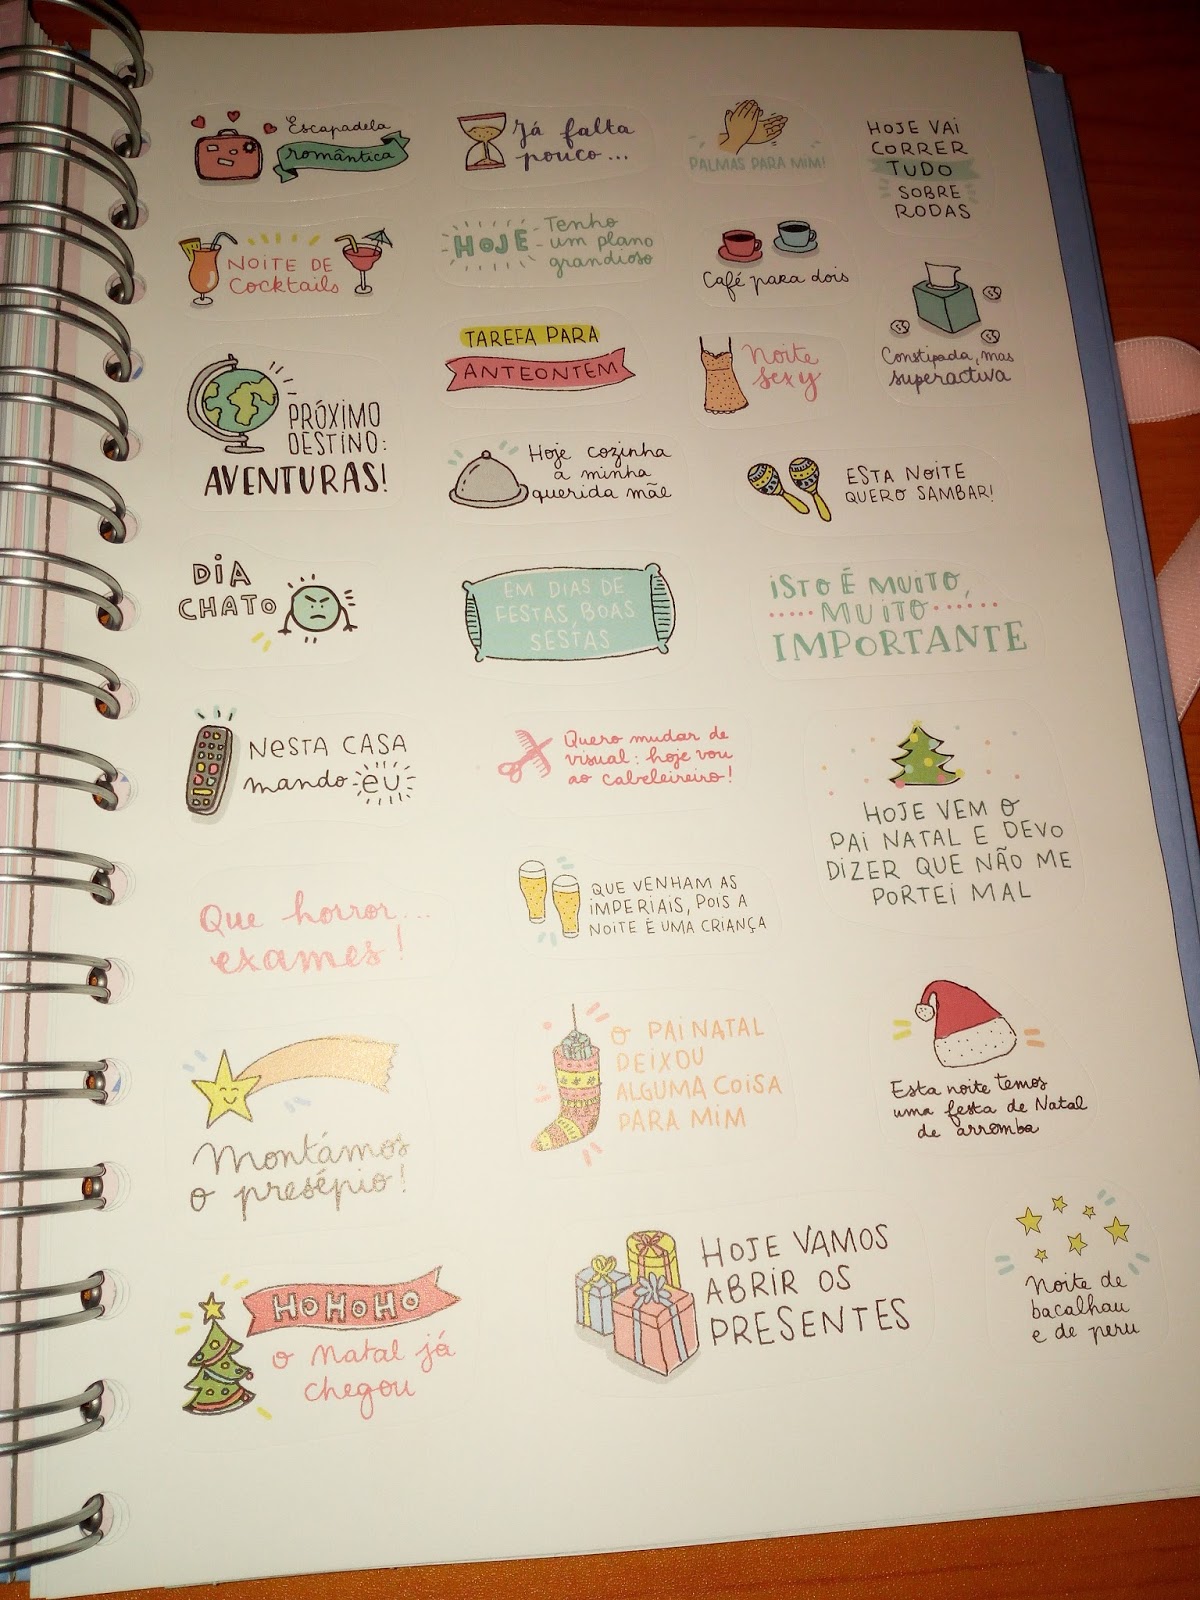 Escapadela
romântica
Já falta
pouco...
PALMAS PARA MIM!
HOJE VAI
CORRER
TUDO
SOBRE
RODAS
NOITE DE
Cocktails
HOJE
Tenho
um plano
grandioso
Café para dois
Constipada, mas
superactiva
TAREFA PARA
ANTEONTEM
Noite
sexy
PRÓXIMO
DESTINO:
AVENTURAS!
Hoje cozinha
a minha
querida mãe
ESTA NOITE
QUERO SAMBAR!
DIA
CHATO
EM DIAS DE
FESTAS, BOAS
SESTAS
ISTO É MUITO,
MUITO
IMPORTANTE
NESTA CASA
mando eu
Quero mudar de
visual: hoje vou
ao cabeleireiro!
HOJE VEM O
PAI NATAL E DEVO
DIZER QUE NÃO ME
PORTEI MAL
Que horror...
exames!
QUE VENHAM AS
IMPERIAIS, POIS A
NOITE É UMA CRIANÇA
Montámos
o presépio!
O PAI NATAL
DEIXOU
ALGUMA COISA
PARA MIM
Esta noite temos
uma festa de Natal
de arromba
HOHOHO
o natal já
chegou
HOJE VAMOS
ABRIR OS
PRESENTES
Noite de
bacalhau
e de peru